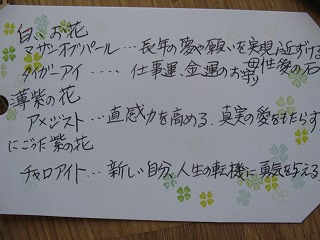 白いお花
マザーオブパール…長年の夢や願いを実現に近ずける
母性愛の石
タイガーアイ‥‥仕事運、金運のお守り
薄紫の花
アメジスト…直感力を高める、真実の愛をもたらす
にごった紫の花
チャロアイト…新しい自分、人生の転機に勇気を与える